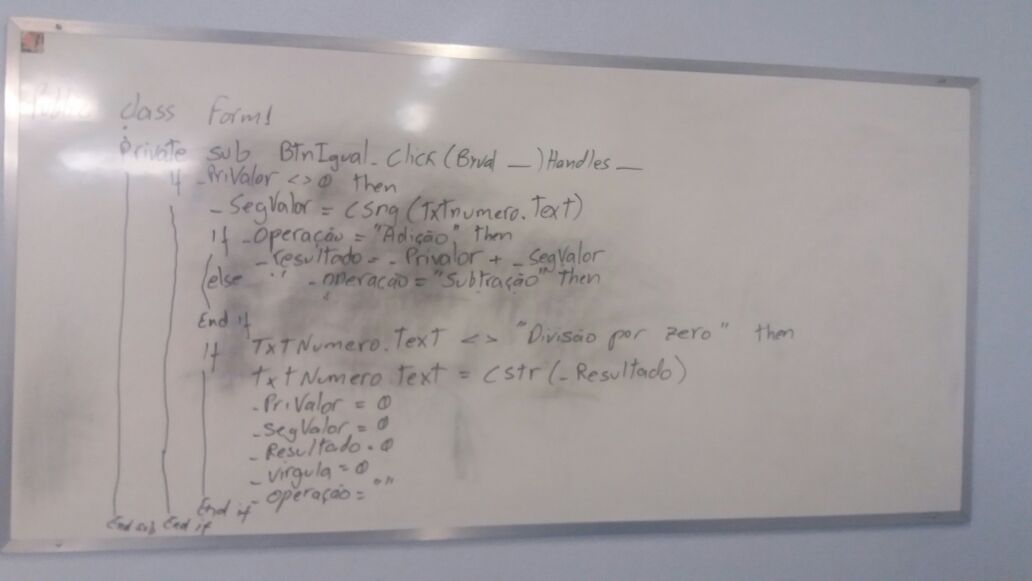 Public class Form1
Private sub BtnIgual_Click(Byval __) Handles __
If _PriValor <> 0 then
_SegValor = CSng (TxTnumero.Text)
if _Operação = "Adição" then
_resultado = _Privalor + _SegValor
else if _operação = "Subtração" then
End if
If TxTNumero.TexT <> "Divisão por zero" then
TxTNumero.TexT = Cstr (_Resultado)
_PriValor = 0
_SegValor = 0
_Resultado = 0
_virgula = 0
_operação = ""
End if
End sub End if